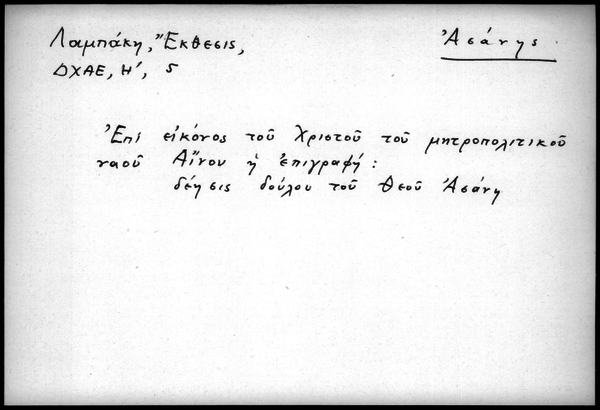 Λαμπάκη, Ἔκθεσις,
Ἀσάνης
ΔΧΑΕ, Η', 5
Ἐπί εἰκόνος τοῦ Χριστοῦ τοῦ μητροπολιτικοῦ
ναοῦ Αἴνου ἡ ἐπιγραφή:
δέησις δούλου τοῦ Θεοῦ Ἀσάνη